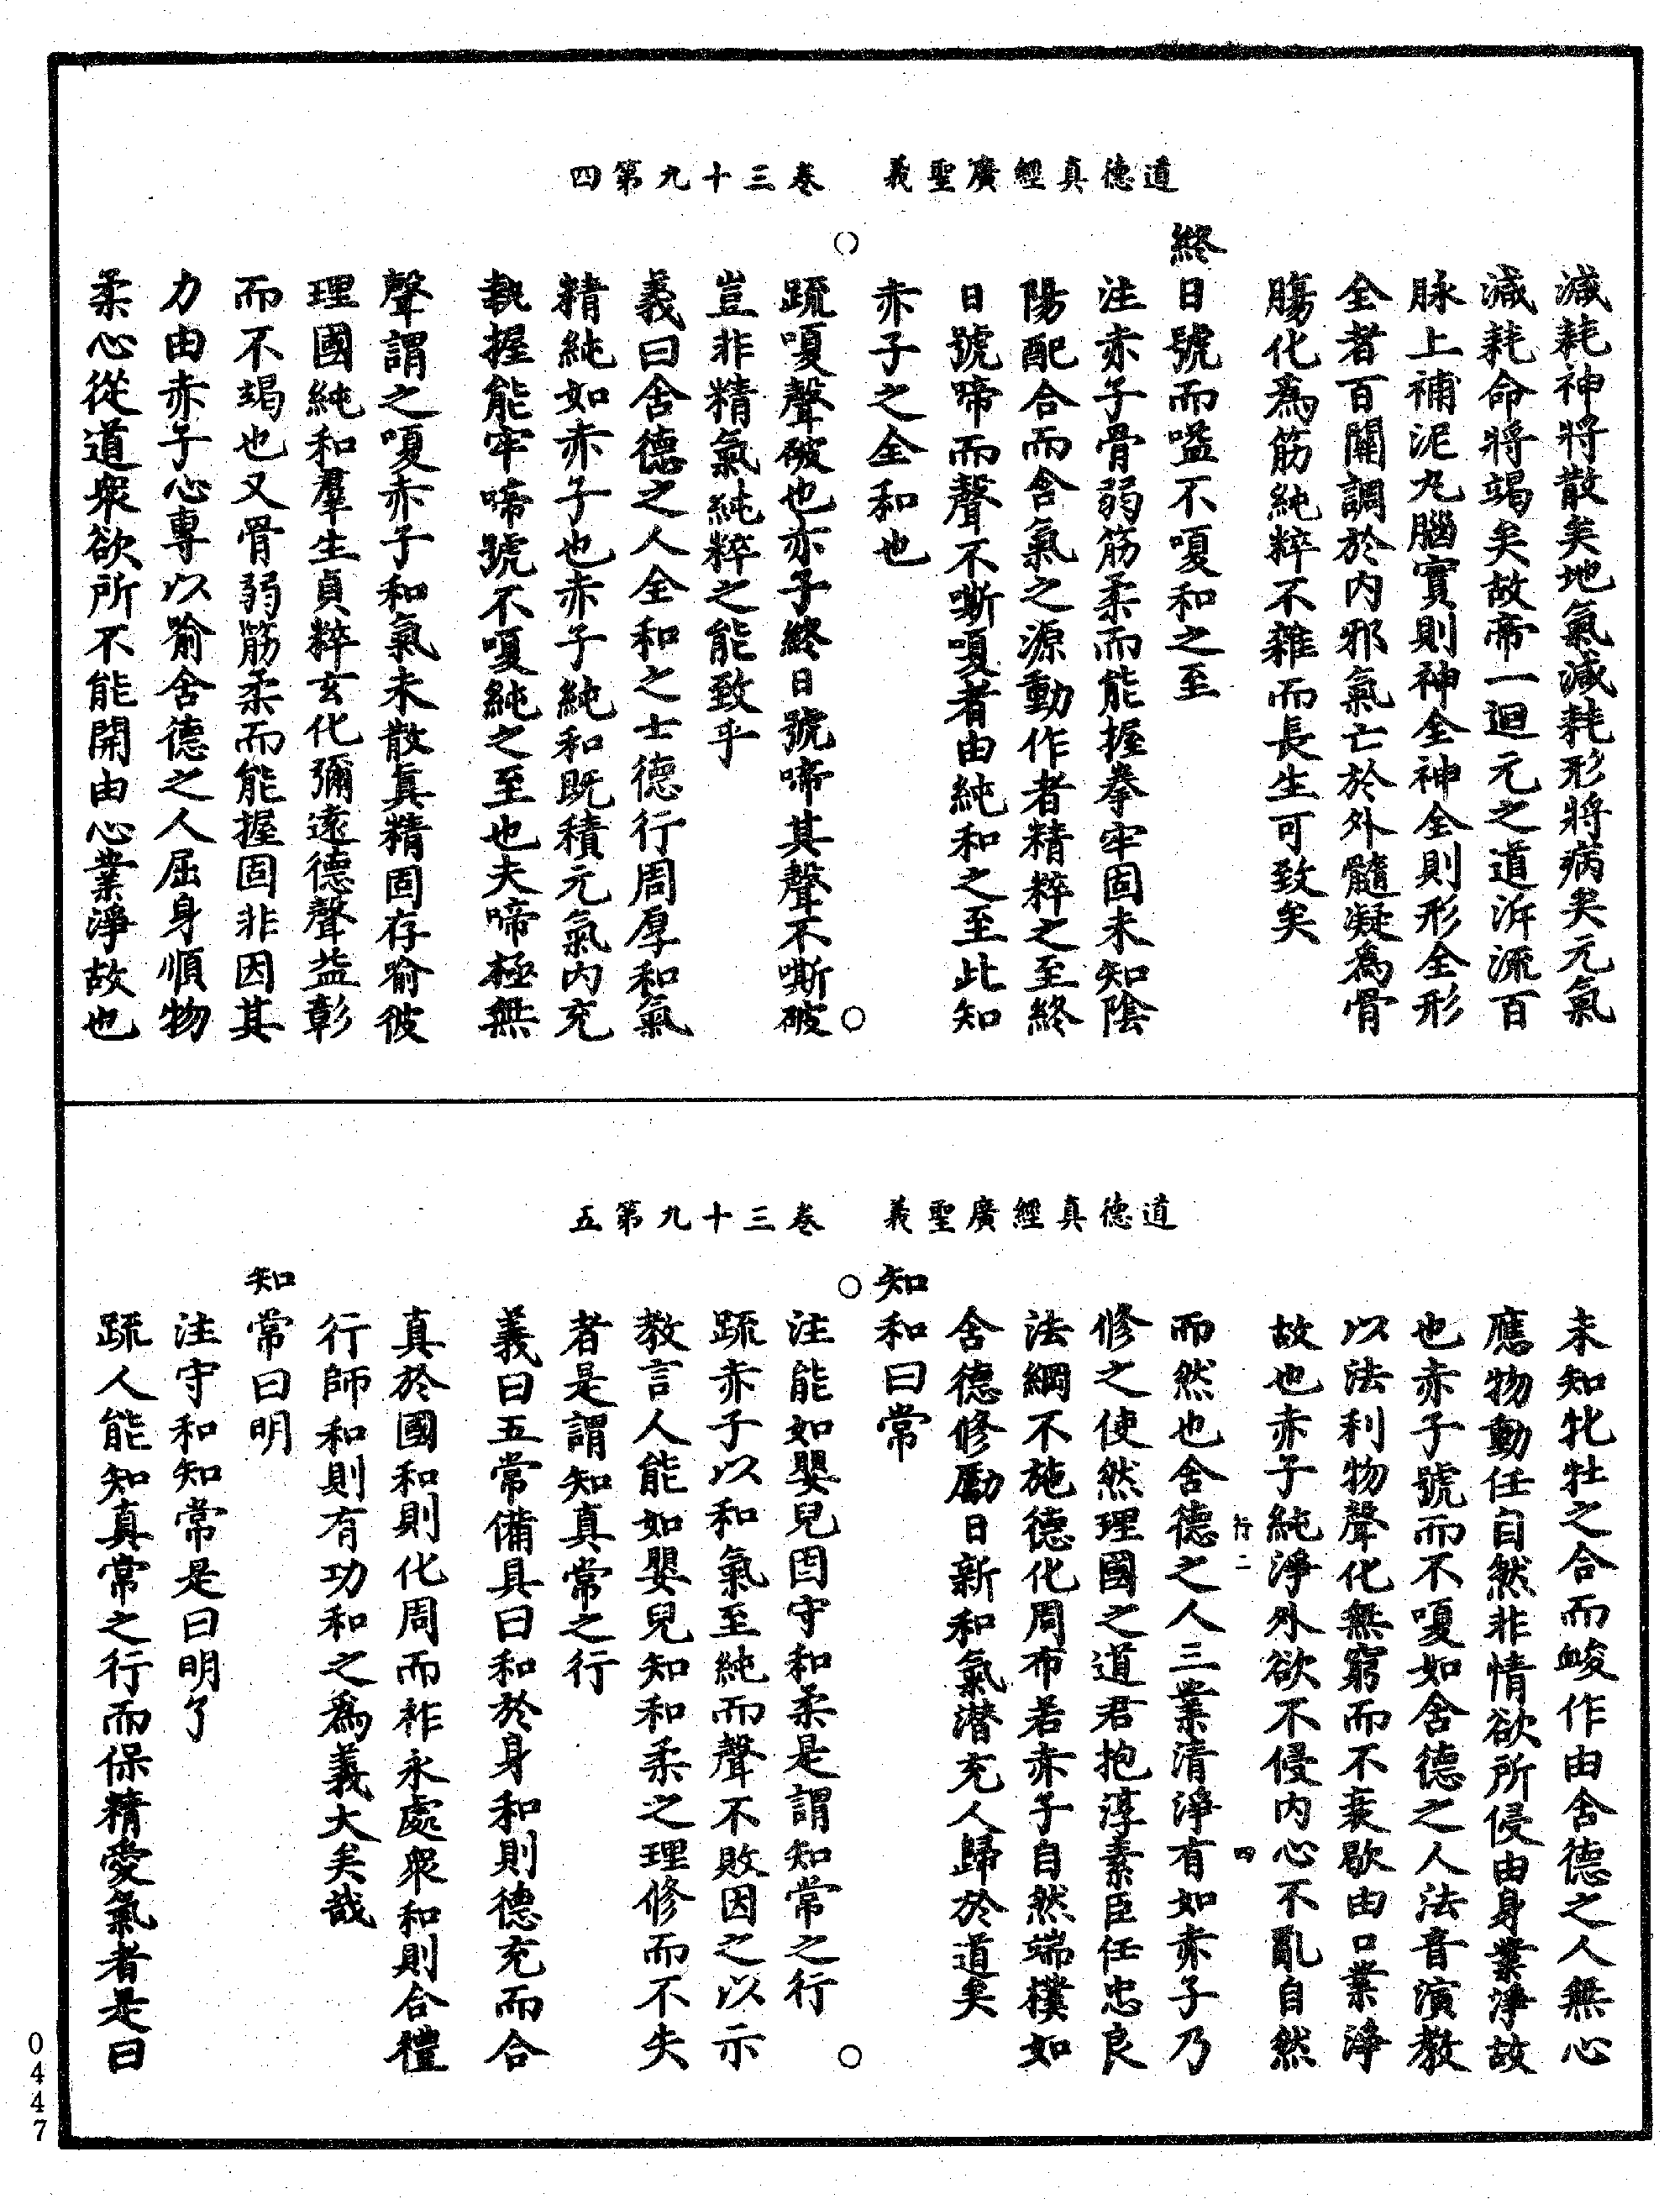 道德真經廣聖義　卷三十九第四
減耗神將散矣地氣減耗形將病矣元氣
減耗命將竭矣故帝一迴元之道泝流百
脉上補泥丸腦實則神全神全則形全形
全者百關調於內邪氣亡於外髓凝為骨
腸化為筋純粹不雜而長生可致矣
終日號而嗌不嗄和之至
注赤子骨弱筋柔而能握拳牢固未知陰
陽配合而含氣之源動作者精粹之至終
日號啼而聲不嘶嗄者由純和之至此知
赤子之全和也
疏嗄聲破也亦子終日號啼其聲不嘶破
豈非精氣純粹之能致乎
義曰含德之人全和之士德行周厚和氣
精純如赤子也赤子純和既積元氣內充
執握能牢啼號不嗄純之至也夫啼極無
聲謂之嗄赤子和氣未散真精固存喻彼
理國純和羣生貞粹玄化彌遠德聲益彰
而不竭也又骨弱筋柔而能握固非因其
力由赤子心專以喻含德之人屈身順物
柔心從道衆欲所不能開由心業淨故也
道德真經廣聖義　卷三十九第五
未知牝牡之合而峻作由含德之人無心
應物動任自然非情欲所侵由身業淨故
也赤子號而不嗄如含德之人法音演教
以法利物聲化無窮而不衰歇由口業淨
故也赤子純淨外欲不侵內心不亂自然
行二　四
而然也含德之人三業清淨有如赤子乃
修之使然理國之道君抱淳素臣任忠良
法綱不施德化周布若赤子自然端樸如
含德修勵日新和氣潛充人歸於道矣
知和曰常
注能如嬰兒固守和柔是謂知常之行
疏赤子以和氣至純而聲不敗因之以示
教言人能如嬰兒知和柔之理修而不失
者是謂知真常之行
義曰五常備具曰和於身和則德充而合
真於國和則化周而祚永處衆和則合禮
行師和則有功和之為義大矣哉
知常曰明
注守和知常是曰明了
疏人能知真常之行而保精愛氣者是曰
0447